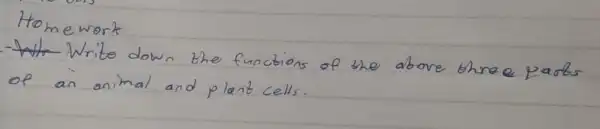 Homework
- Write down the functions of the above three parts
of an animal and plant cells.